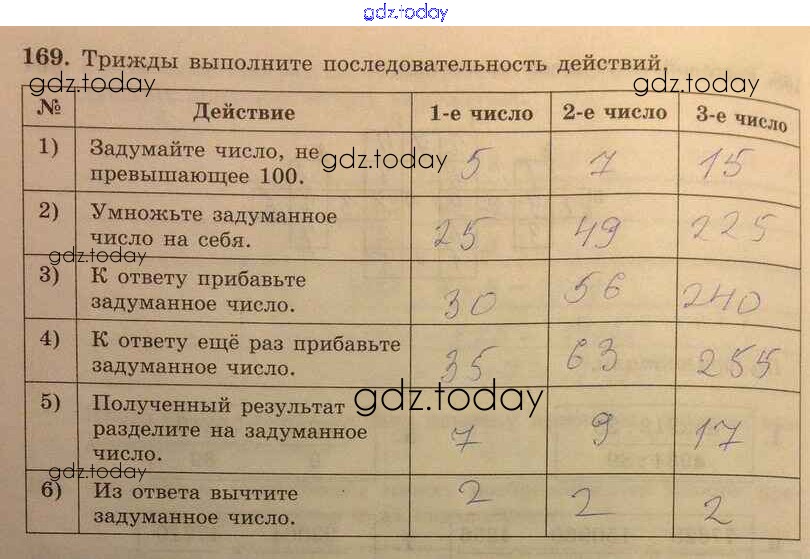 gdz.today
169. Трижды выполните последовательность действий.
gdz.today gdz.today
№ Действие 1-е число 2-е число 3-е число
1) Задумайте число, не
превышающее 100. 5 7 15
gdz.today
2) Умножьте задуманное
число на себя. 25 49 225
gdz.today
3) К ответу прибавьте
задуманное число. 30 56 240
4) К ответу ещё раз прибавьте
задуманное число. 35 63 255
gdz.today
5) Полученный результат
разделите на задуманное
число. 7 9 17
gdz.today
6) Из ответа вычтите
задуманное число. 2 2 2